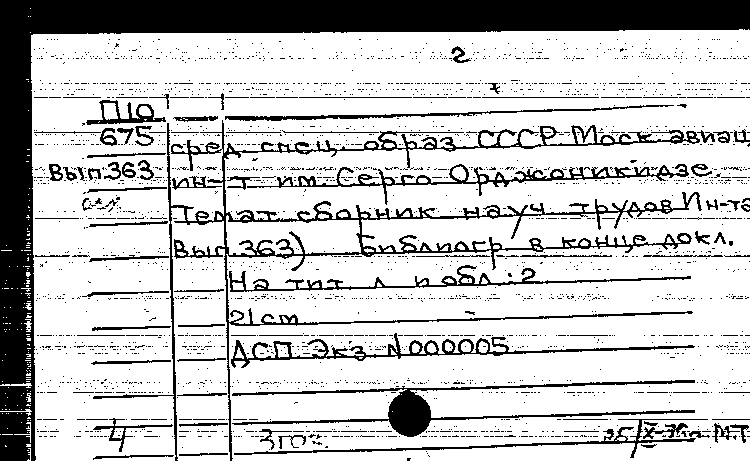 2
П10
675 сред. спец. образ СССР. Моск авиац.
Вып.363 ин-т им. Серго Орджоникидзе.
Темат сборник науч трудов Ин-та
Вып.363) Библиогр в конце докл.
На тит л и обл.: 2
21 cm
ДСП Экз N000005
4
М.Т